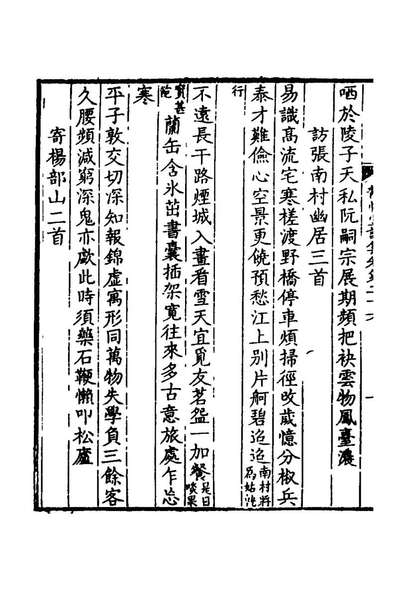 哂於陵子天私阮嗣宗展期頻把袂雲物鳳臺濃
訪張南村幽居三首
易識高流宅寒槎渡野橋停車煩掃徑改歲憶分椒兵
泰才難儉心空景更饒預愁江上別片舸碧迢迢南村將爲姑洗
行
不遠長干路煙城入畫看雪天宜覓友茗盌一加餐是日啖果
實甚陀蘭缶含氷茁書囊插架寬往來多古意旅處乍忘
寒
平子敦交切深知報錦虛寓形同萬物失學負三餘客
久腰頻減窮深鬼亦歔此時須藥石鞭懶叩松廬
寄楊部山二首